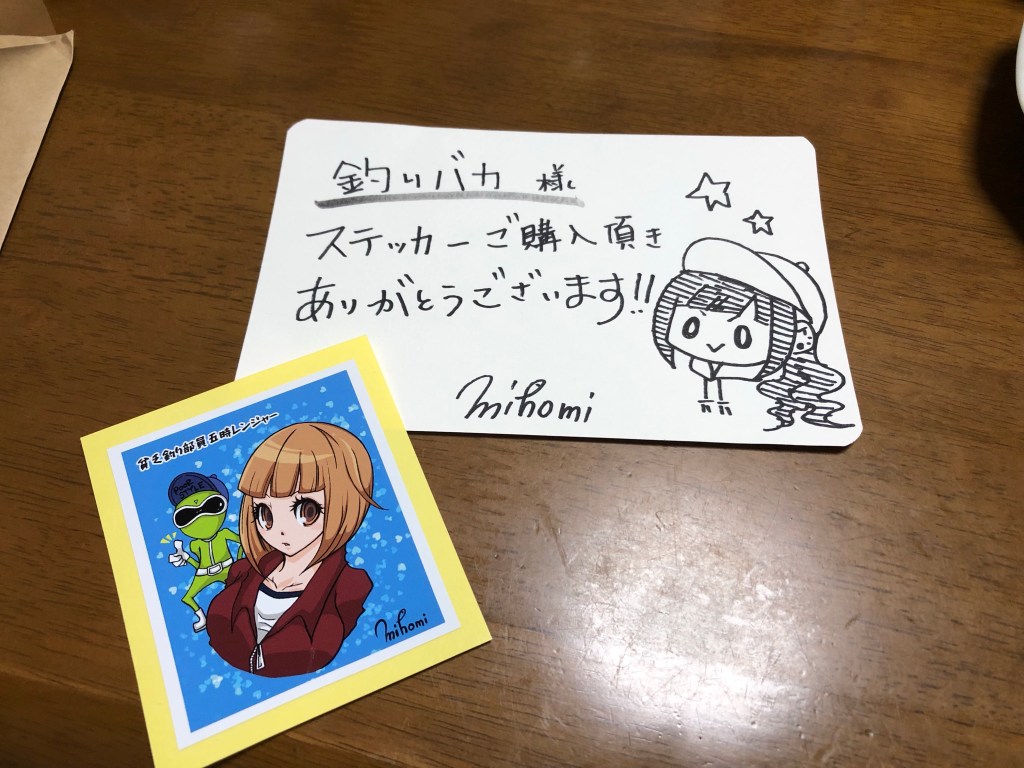 釣りバカ 様
ステッカーご購入頂き
ありがとうございます!!
mihomi
貧乏釣り部員五時レンジャー
POOR
STYLE
mihomi